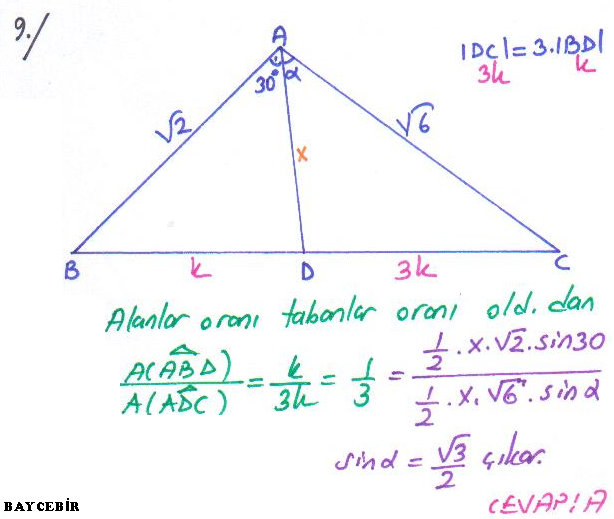 9./
A
|DC| = 3.|BD|
3k k
30° α
√2
√6
x
B k D 3k C
Alanlar oranı tabanlar oranı old. dan
A(ABD) / A(ADC) = k / 3k = 1 / 3 = 1/2 . x . √2 . sin30 / 1/2 . x . √6 . sin α
sin α = √3 / 2 çıkar.
CEVAP: A
BAYCEBİR